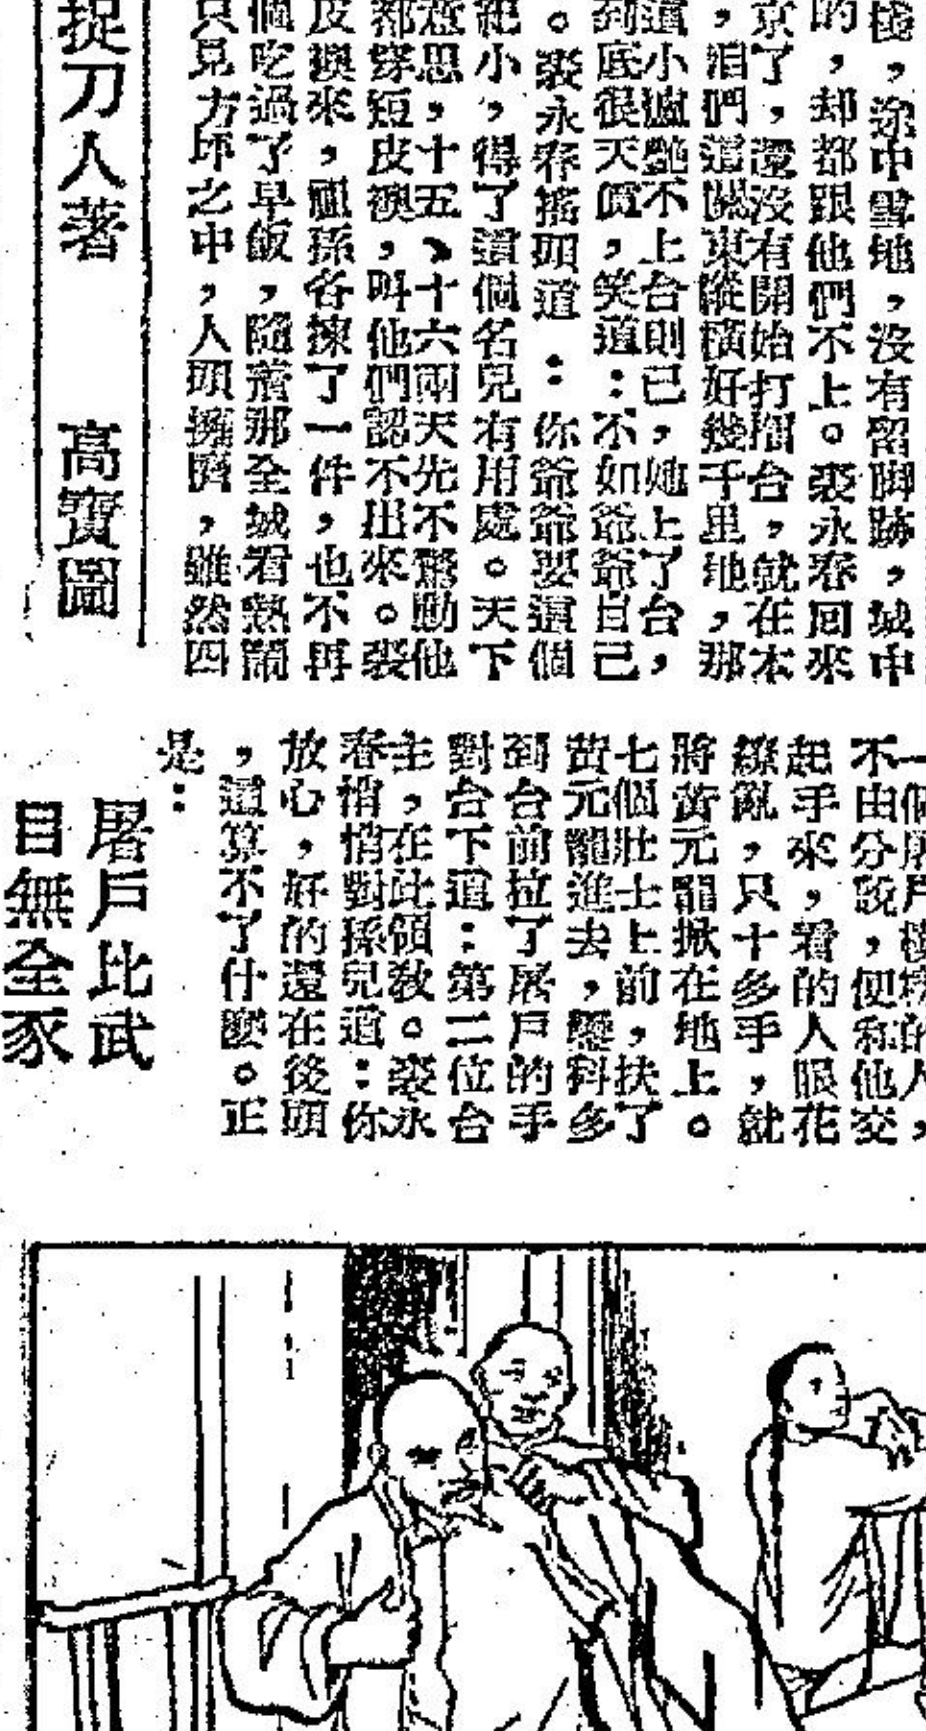 後，途中雪地，沒有留脚跡，城中
的，却都跟他們不上。裘永春回來
京了，還沒有開始打擂台，就在本
，咱們這關東縱橫好幾千里地，那
這小盧艷不上台則已，她上了台，
到底很天眞，笑道：不如爺爺自己
。裘永春搖頭道：你爺爺要這個
紀小，得了這個名兒有用處。天下
意思，十五、十六兩天先不驚動他
都穿短皮襖，叫他們認不出來。裘
皮襖來，祖孫各揀了一件，也不再
個吃過了早飯，隨着那全城看熱鬧
只見方坪之中，人頭擁擠，雖然四
捉刀人著　高寶圖
一個屠戶模樣的人，
不由分說，便和他交
起手來，看的人眼花
繚亂，只十多手，就
將黃元龍掀在地上。
七個壯士上前，扶了
黃元龍進去，變科多
到台前拉了屠戶的手
對台下道：第二位台
主，在此領教。裘永
春悄悄對孫兒道：你
放心，好的還在後頭
，這算不了什麼。正
是：
屠戶比武
目無全豕